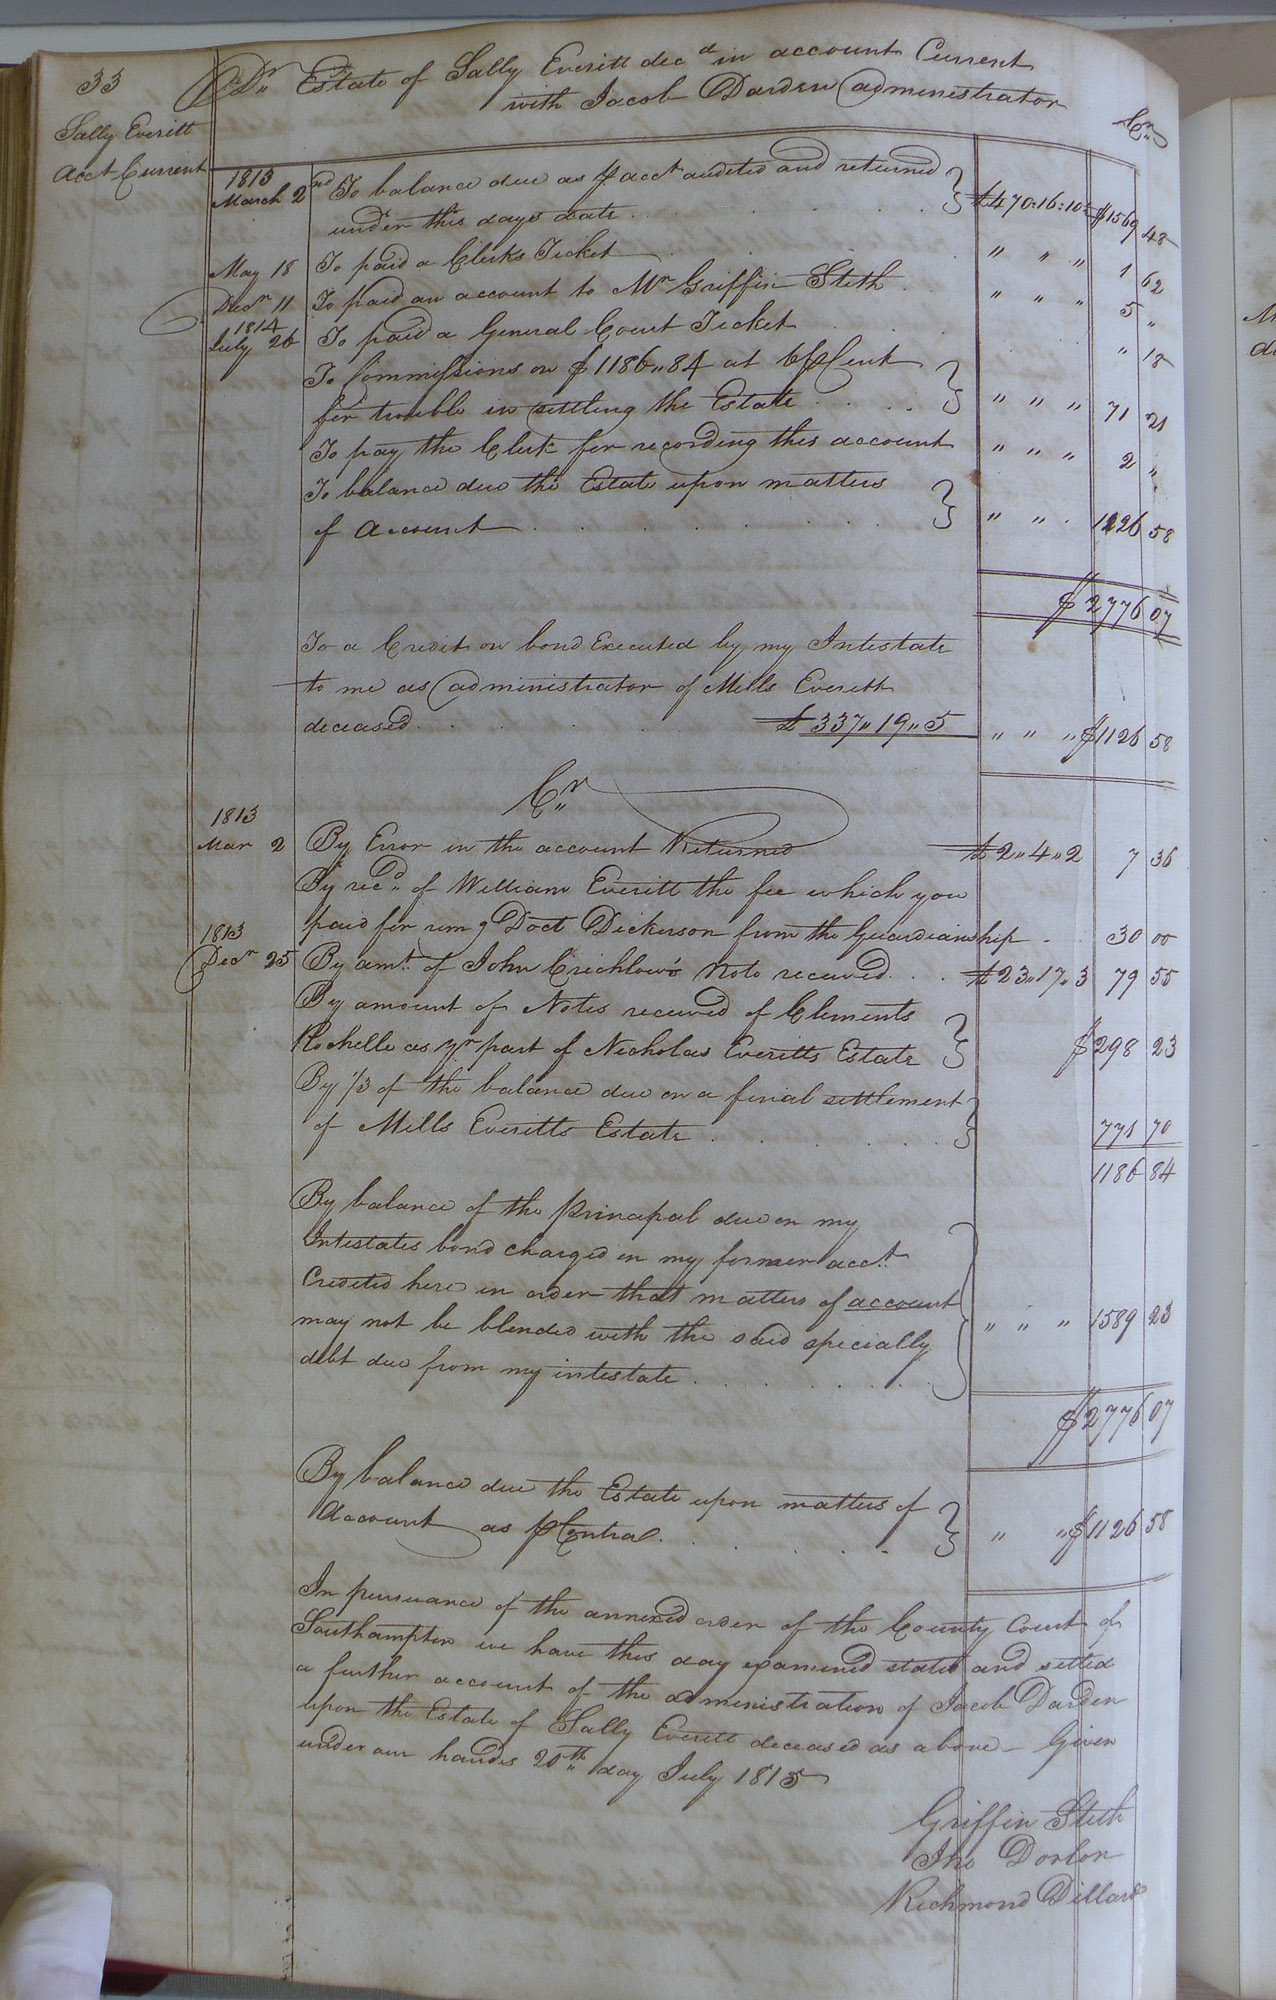 33
Dr. Estate of Sally Everitt decd in account Current
with Jacob Darden administrator
Cr.
Sally Everitt
Acct Current
1813
March 2nd To balance due as pr acct audited and returned
under this days date £470.16.10 $1569 48
May 18 To paid a Clerks Ticket " " " 1 62
Decr 11 To paid an account to Mr Griffin Stith " " " 5 "
1814
July 26 To paid a General Court Ticket " 18
To Commissions on $1186.84 at 6 pr Cent
for trouble in settling the Estate " " " 71 21
To pay the Clerk for recording this account " " " 2 "
To balance due the Estate upon matters
of Account " " 1126 58
$2776 07
To a Credit on bond Executed by my Intestate
to me as administrator of Mills Everett
deceased £337"19"5 " " " $1126 58
Cr.
1813
Mar 2 By Error in the account Returned £2"4"2 7 36
By recd. of William Everitt the fee which you
paid for remg Doct Dickerson from the Guardianship 30 00
1813
Decr 25 By amt. of John Crichlow's Note received £23"17"3 79 55
By amount of Notes received of Clements
Rochelle as yr part of Nicholas Everitts Estate $298 23
By 1/3 of the balance due on a final settlement
of Mills Everitts Estate 771 70
1186 84
By balance of the Principal due on my
Intestates bond charged in my former acct.
Credited here in order that matters of account
may not be blended with the said specially " " " 1589 23
debt due from my intestate
$2776 07
By balance due the Estate upon matters of
Account as pr Contra " " $1126 58
In pursuance of the annexed order of the County Court of
Southampton we have this day examined stated and settled
a further account of the administration of Jacob Darden
upon the Estate of Sally Everitt deceased as above - Given
under our hands 20th day July 1815
Griffin Stith
Richmond Dillard